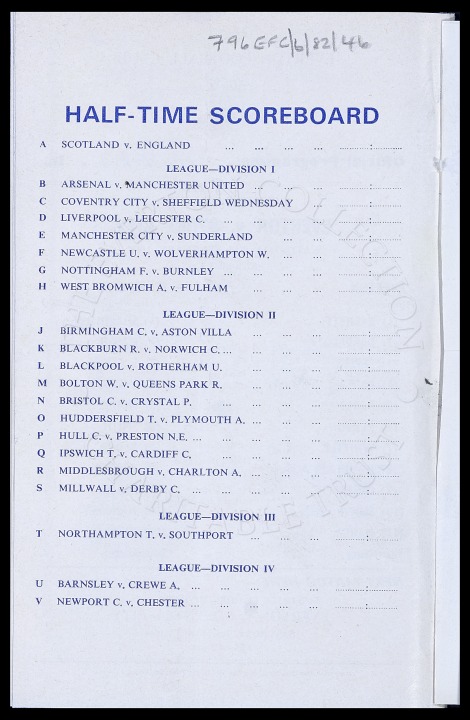 796EFC/6/82/46
HALF-TIME SCOREBOARD
A SCOTLAND v. ENGLAND ... ... ... ... ............:............
LEAGUE—DIVISION I
B ARSENAL v. MANCHESTER UNITED ... ... ... ............:............
C COVENTRY CITY v. SHEFFIELD WEDNESDAY ... ............:............
D LIVERPOOL v. LEICESTER C. ... ... ... ............:............
E MANCHESTER CITY v. SUNDERLAND ... ... ............:............
F NEWCASTLE U. v. WOLVERHAMPTON W. ... ... ............:............
G NOTTINGHAM F. v. BURNLEY ... ... ... ... ............:............
H WEST BROMWICH A. v. FULHAM ... ... ... ............:............
LEAGUE—DIVISION II
J BIRMINGHAM C. v. ASTON VILLA ... ... ... ............:............
K BLACKBURN R. v. NORWICH C. ... ... ... ... ............:............
L BLACKPOOL v. ROTHERHAM U. ... ... ... ............:............
M BOLTON W. v. QUEENS PARK R. ... ... ... ............:............
N BRISTOL C. v. CRYSTAL P. ... ... ... ... ............:............
O HUDDERSFIELD T. v. PLYMOUTH A. ... ... ... ............:............
P HULL C. v. PRESTON N.E. ... ... ... ... ... ............:............
Q IPSWICH T. v. CARDIFF C. ... ... ... ... ............:............
R MIDDLESBROUGH v. CHARLTON A. ... ... ... ............:............
S MILLWALL v. DERBY C. ... ... ... ... ... ............:............
LEAGUE—DIVISION III
T NORTHAMPTON T. v. SOUTHPORT ... ... ... ............:............
LEAGUE—DIVISION IV
U BARNSLEY v. CREWE A. ... ... ... ... ... ............:............
V NEWPORT C. v. CHESTER ... ... ... ... ... ............:............